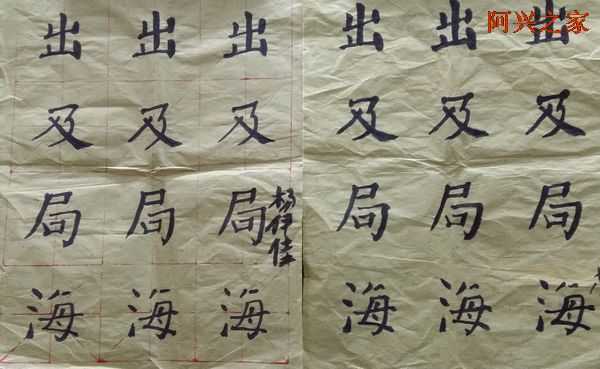 出出出
及及及
局局局
海海海
杨伊佳
阿兴之家
出出出
及及及
局局局
海海海